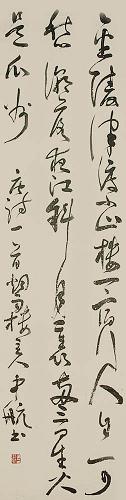 金陵津渡小山楼一宿行人自可
愁潮落夜江斜月裏两三星火
是瓜州
唐诗一首楼主人航书